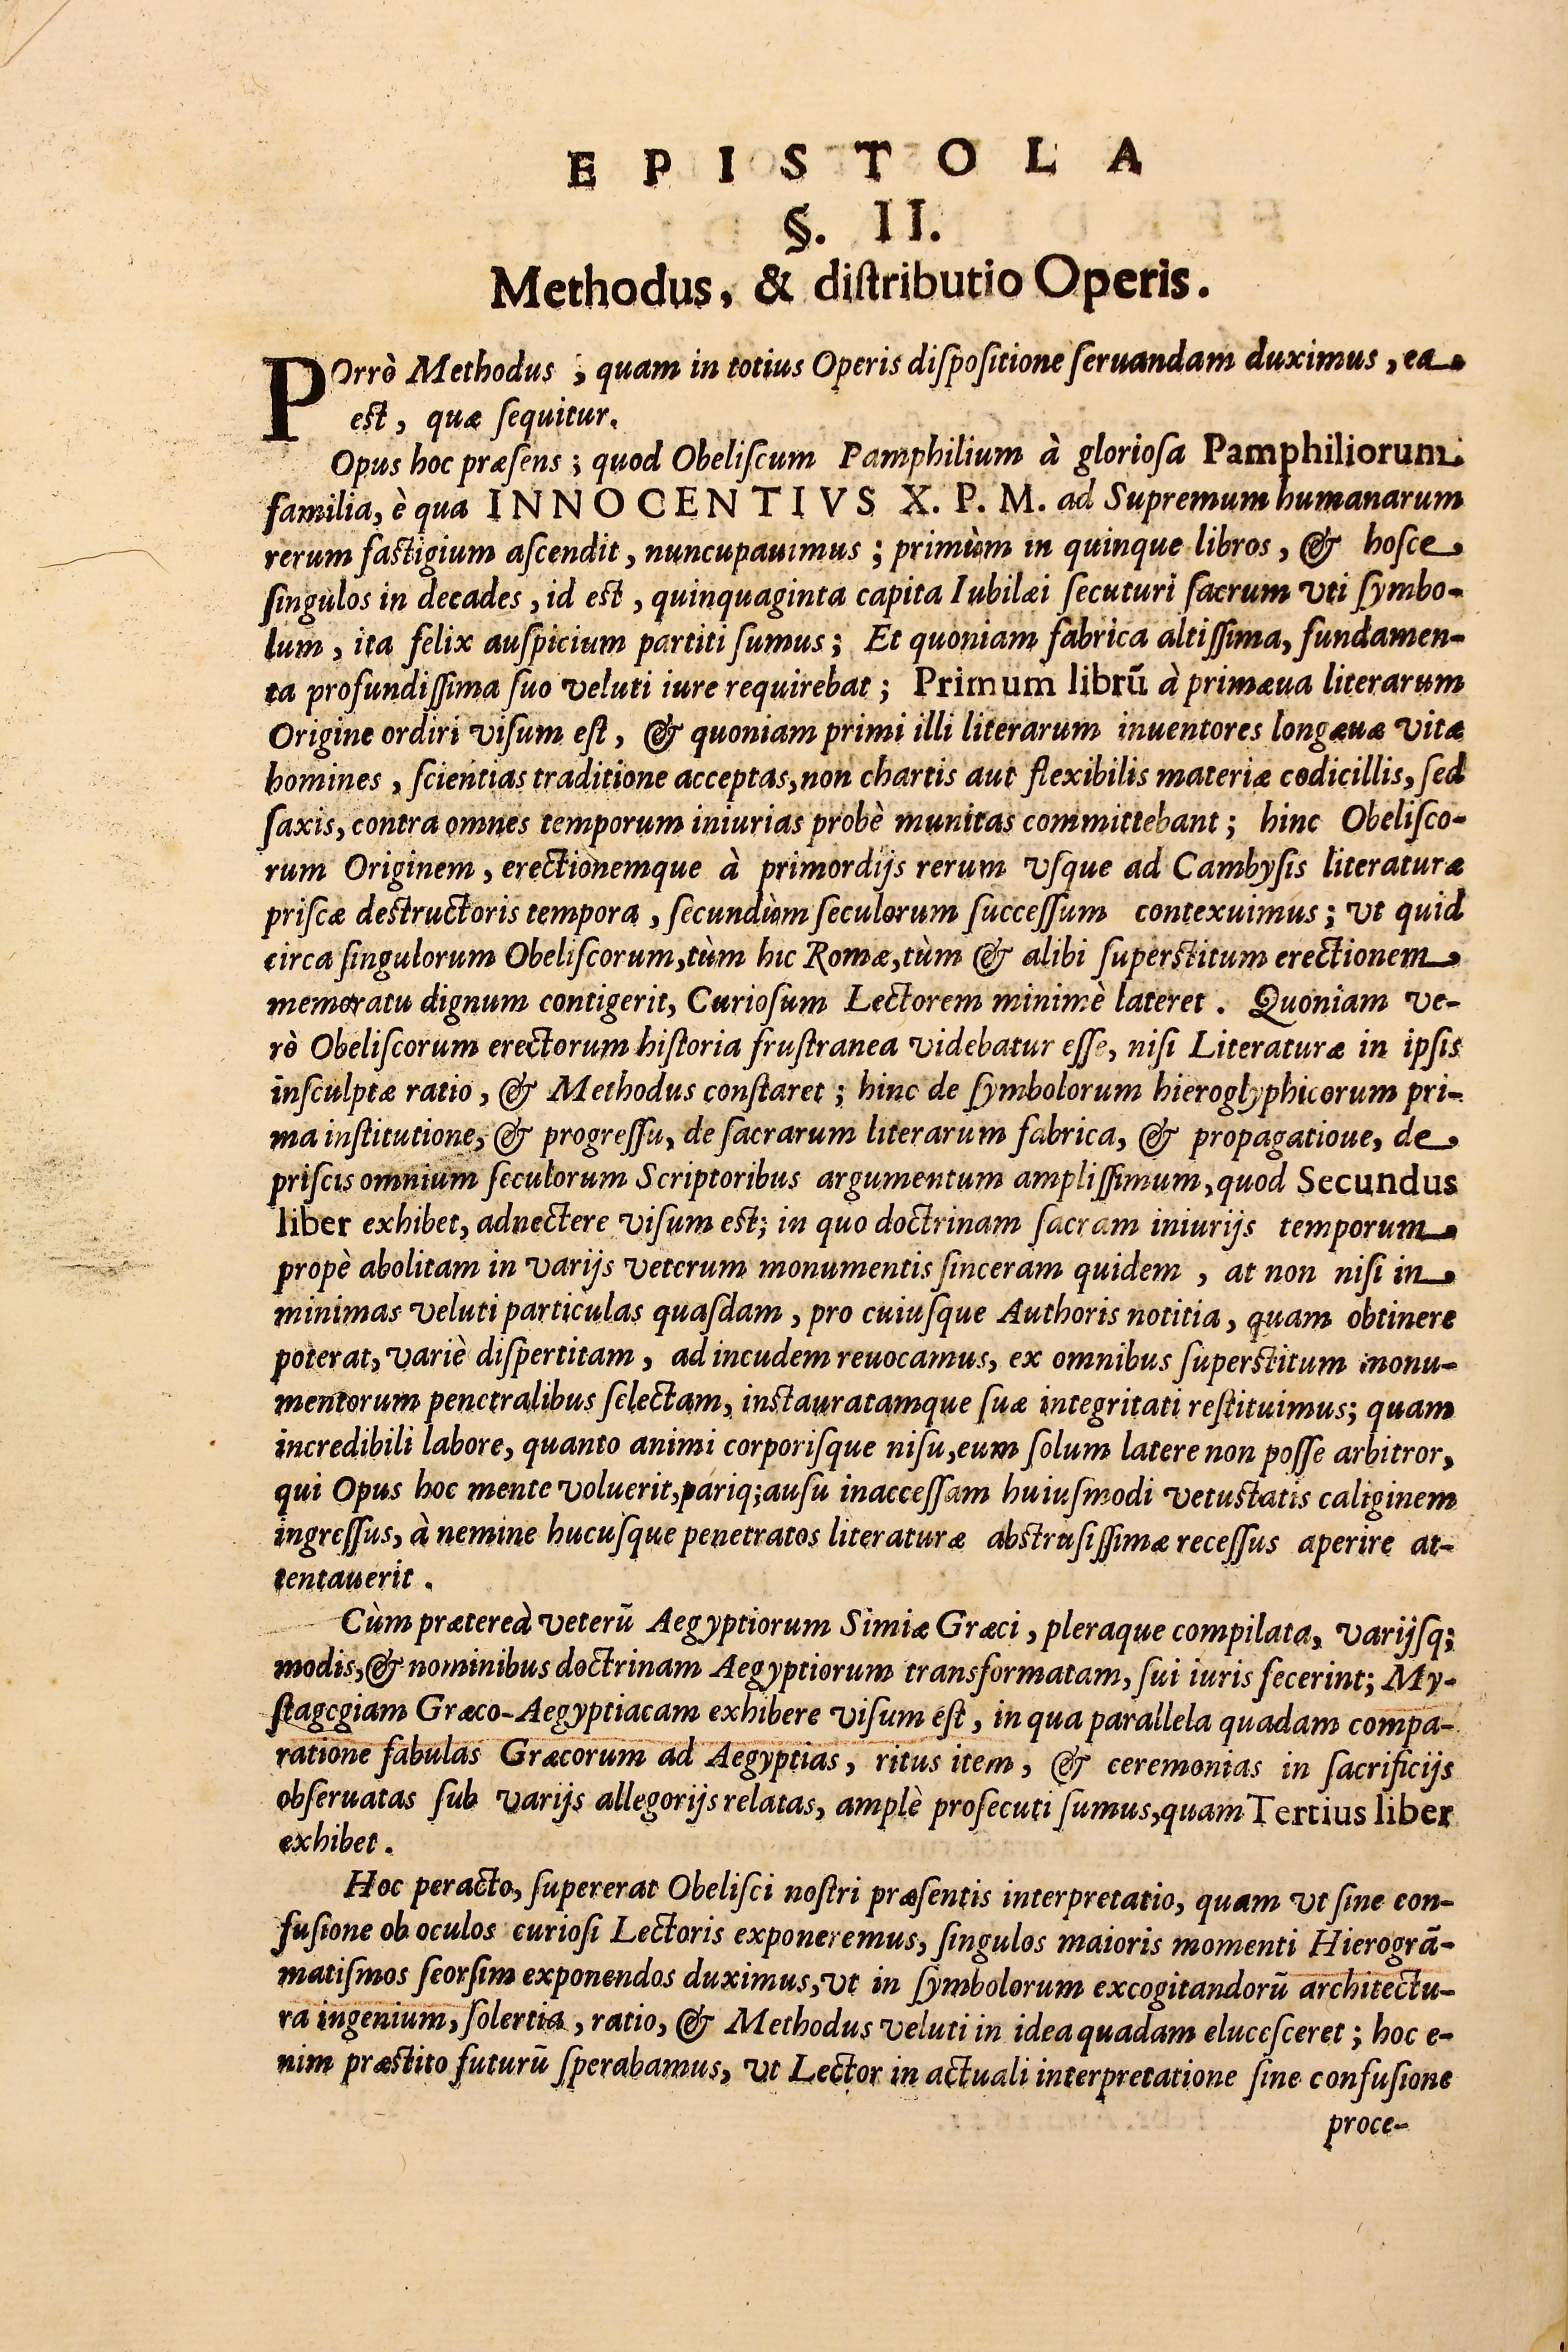 EPISTOLA
§. II.
Methodus, & diſtributio Operis.
POrrò Methodus ; quam in totius Operis diſpoſitione ſeruandam duximus , ea
eſt , quæ ſequitur.
Opus hoc præſens ; quod Obeliſcum Pamphilium à glorioſa Pamphiliorum
familia, è qua INNOCENTIVS X. P. M. ad Supremum humanarum
rerum faſtigium aſcendit , nuncupauimus ; primùm in quinque libros , & hoſce
ſingulos in decades , id eſt , quinquaginta capita Iubilæi ſecuturi ſacrum vti ſymbo-
lum , ita felix auſpicium partiti ſumus ; Et quoniam fabrica altiſſima, fundamen-
ta profundiſſima ſuo veluti iure requirebat ; Primum librũ à primæua literarum
Origine ordiri viſum eſt , & quoniam primi illi literarum inuentores longæuæ vitæ
homines , ſcientias traditione acceptas, non chartis aut flexibilis materiæ codicillis, ſed
ſaxis, contra omnes temporum iniurias probè munitas committebant ; hinc Obeliſco-
rum Originem , erectionemque à primordijs rerum vſque ad Cambyſis literaturæ
priſcæ deſtructoris tempora , ſecundùm ſeculorum ſucceſſum contexuimus ; vt quid
circa ſingulorum Obeliſcorum, tùm hic Romæ, tùm & alibi ſuperſtitum erectionem
memoratu dignum contigerit, Curioſum Lectorem minimè lateret . Quoniam ve-
rò Obeliſcorum erectorum hiſtoria fruſtranea videbatur eſſe, niſi Literaturæ in ipſis
inſculptæ ratio , & Methodus conſtaret ; hinc de ſymbolorum hieroglyphicorum pri-
ma inſtitutione, & progreſſu, de ſacrarum literarum fabrica, & propagatioue, de
priſcis omnium ſeculorum Scriptoribus argumentum ampliſſimum, quod Secundus
liber exhibet, adnectere viſum eſt; in quo doctrinam ſacram iniurijs temporum
propè abolitam in varijs veterum monumentis ſinceram quidem , at non niſi in
minimas veluti particulas quaſdam , pro cuiuſque Authoris notitia , quam obtinere
poterat, variè diſpertitam , ad incudem reuocamus, ex omnibus ſuperſtitum monu-
mentorum penetralibus ſelectam, inſtauratamque ſuæ integritati reſtituimus; quam
incredibili labore, quanto animi corporiſque niſu, eum ſolum latere non poſſe arbitror,
qui Opus hoc mente voluerit, pariq; auſu inacceſſam huiuſmodi vetuſtatis caliginem
ingreſſus, à nemine hucuſque penetratos literaturæ abſtruſiſſimæ receſſus aperire at-
tentauerit .
Cùm prætereà veterũ Aegyptiorum Simiæ Græci , pleraque compilata, varijſq;
modis, & nominibus doctrinam Aegyptiorum transformatam, ſui iuris fecerint; My-
ſtagogiam Græco-Aegyptiacam exhibere viſum eſt , in qua parallela quadam compa-
ratione fabulas Græcorum ad Aegyptias , ritus item , & ceremonias in ſacrificijs
obſeruatas ſub varijs allegorijs relatas, amplè proſecuti ſumus, quam Tertius liber
exhibet .
Hoc peracto, ſupererat Obeliſci noſtri præſentis interpretatio, quam vt ſine con-
fuſione ob oculos curioſi Lectoris exponeremus, ſingulos maioris momenti Hierogrã-
matiſmos ſeorſim exponendos duximus, vt in ſymbolorum excogitandorũ architectu-
ra ingenium, ſolertia , ratio, & Methodus veluti in idea quadam eluceſceret ; hoc e-
nim præſtito futurũ ſperabamus, vt Lector in actuali interpretatione ſine confuſione
proce-